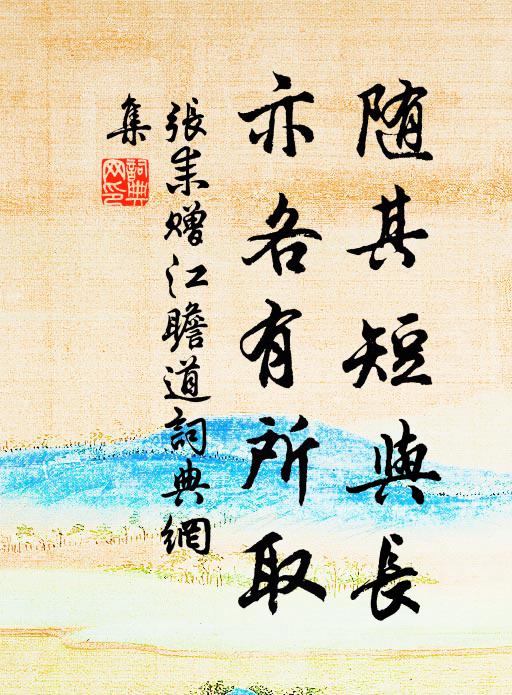 随其短與長
亦各有所取
張耒赠江瞻道詞典網
集
詞典
网印